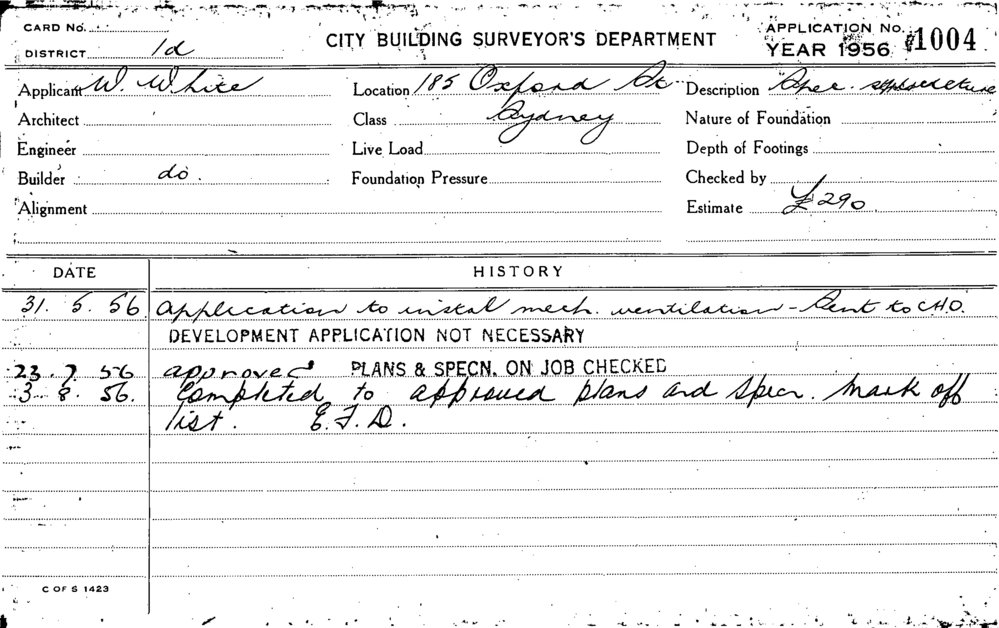 CARD No.
DISTRICT 1d
CITY BUILDING SURVEYOR'S DEPARTMENT
APPLICATION No. 1004
YEAR 1956
Applicant W. White
Location 185 Oxford St
Description Spec.
Architect
Class Sydney
Nature of Foundation
Engineer
Live Load
Depth of Footings
Builder do.
Foundation Pressure
Checked by
Alignment
Estimate £290
DATE
HISTORY
31. 5. 56 Application to instal mech. ventilation - Sent to C.H.O.
DEVELOPMENT APPLICATION NOT NECESSARY
23. 7 56 approved PLANS & SPECN. ON JOB CHECKED
3 - 8. 56. Completed to approved plans and specn. Mark off
list. E.F.D.
C OF S 1423